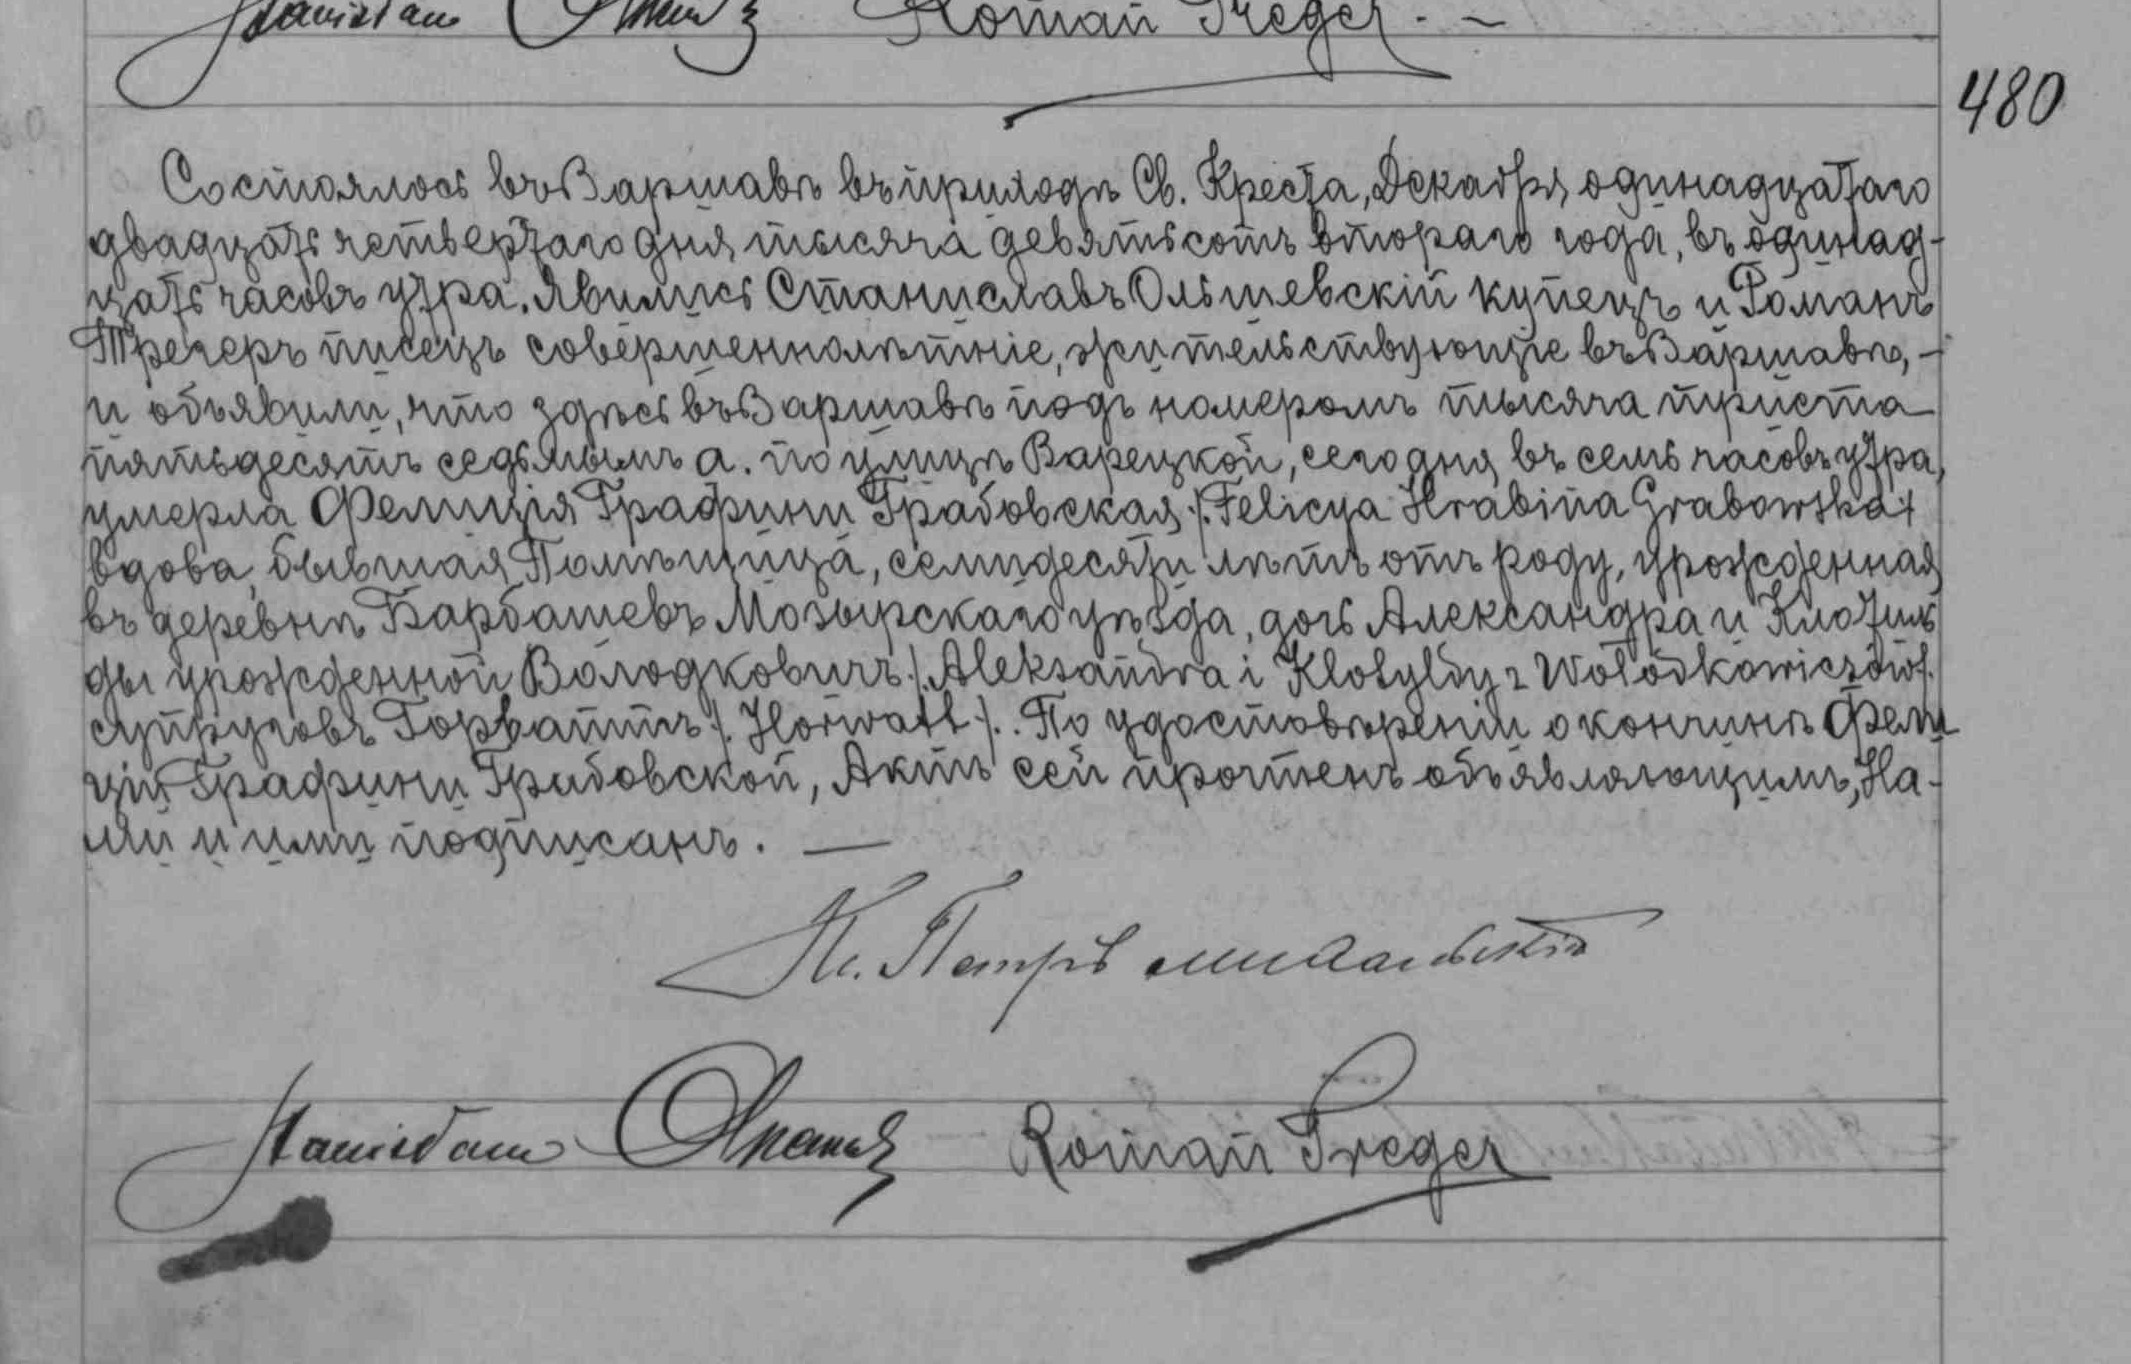 Stanisław Roman Treger. —
480
Состоялось въ Варшавѣ въ приходѣ Св. Креста, Декабря одинадцатаго
двадцать четвертаго дня тысяча девятьсотъ втораго года, въ одинад-
цать часовъ утра. Явились Станиславъ Ольшевскій купецъ и Романъ
Трегеръ писецъ совершеннолѣтніе, жительствующіе въ Варшавѣ, –
и объявили, что здѣсь въ Варшавѣ подъ номеромъ тысяча триста
пятьдесятъ седьмымъ а. по улицѣ Варецкой, сего дня въ семь часовъ утра,
умерла Фелиція Графини Грабовская /. Felicya Hrabina Grabowska ./
вдова, бывшая Помѣщица, семидесяти лѣтъ отъ роду, урожденная
въ деревнѣ Барбашевъ Мозырскаго уѣзда, дочь Александра и Клотиль
ды урожденной Володковичъ /. Aleksandra i Klotyldy z Wołodkowiczów /.
супруговъ Горваттъ /. Horwatt ./. По удостовѣреніи о кончинѣ Фели
ціи Графини Грабовской, Актъ сей прочтенъ объявляющимъ, На-
ми и ими подписанъ. —
Кс. Петръ
Stanisław Roman Treger